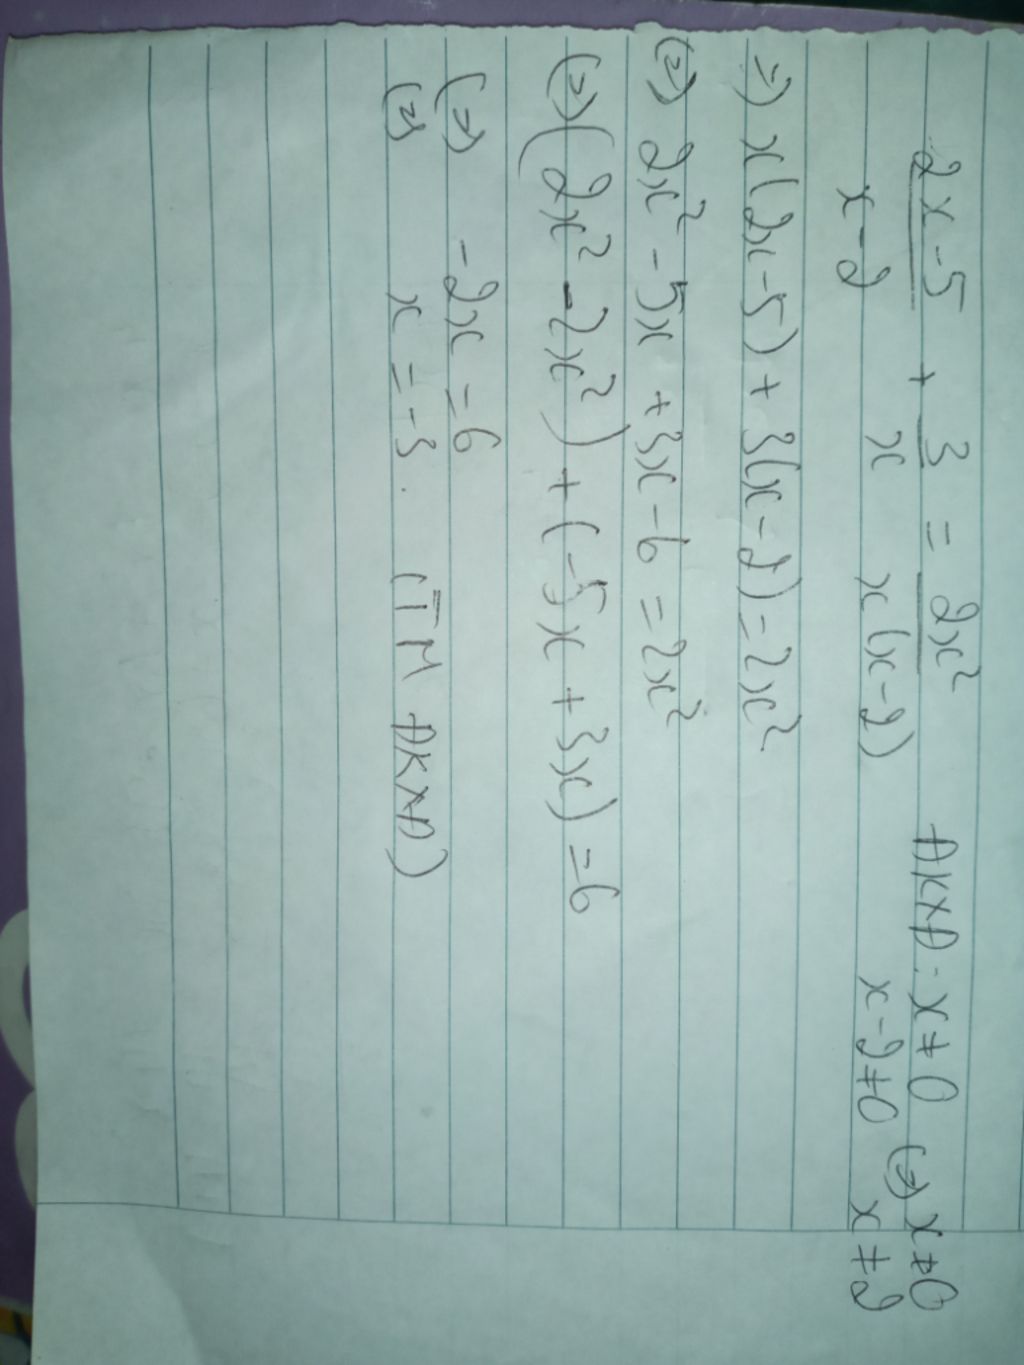 2x-5/x-2 + 3/x = 2x²/x(x-2) ĐKXĐ: x≠0 (=) x≠0
x-2≠0 x≠2
=) x(2x-5)+3(x-2)=2x²
(=) 2x²-5x+3x-6=2x²
(=) (2x²-2x²)+(-5x+3x)=6
(=) -2x=6
(=) x=-3. (TM ĐKXĐ)